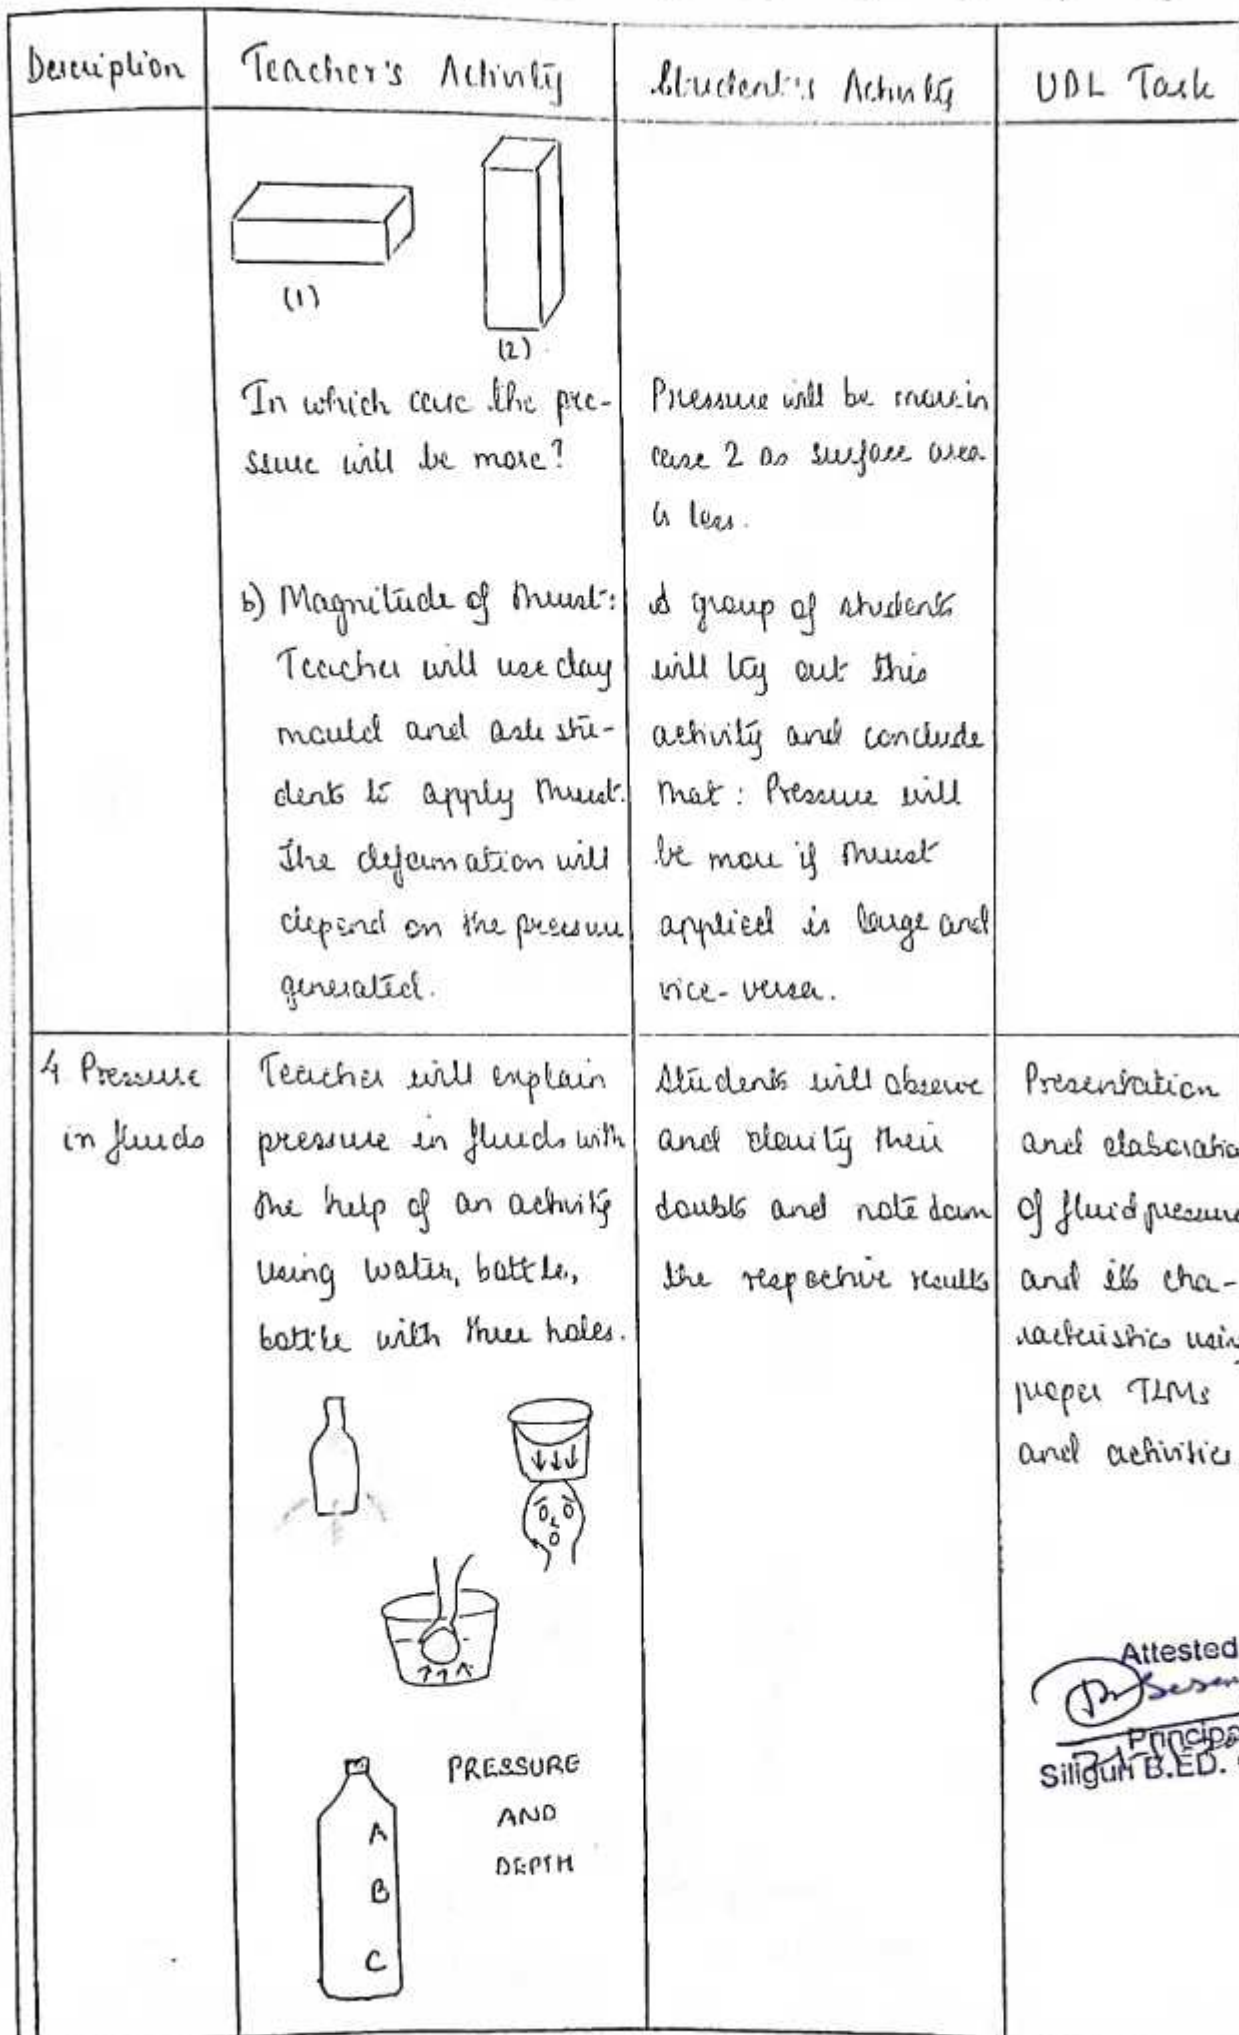 Description
Teacher's Activity
Student's Activity
UDL Task
(1)
(2)
In which case the pre-
ssure will be more?
Pressure will be more in
case 2 as surface area
is less.
b) Magnitude of thrust:
Teacher will use clay
mould and ask stu-
dents to apply thrust.
The deformation will
depend on the pressure
generated.
A group of students
will try out this
activity and conclude
that : Pressure will
be more if thrust
applied is large and
vice-versa.
4 Pressure
in fluids
Teacher will explain
pressure in fluids with
the help of an activity
using water, bottle,
bottle with three holes.
PRESSURE
AND
DEPTH
A
B
C
Students will observe
and clarify their
doubts and note down
the respective results
Presentation
and elaboratio
of fluid pressure
and its cha-
racteristics usin
proper TLMs
and activities
Attested
Principa
Siliguri B.ED.